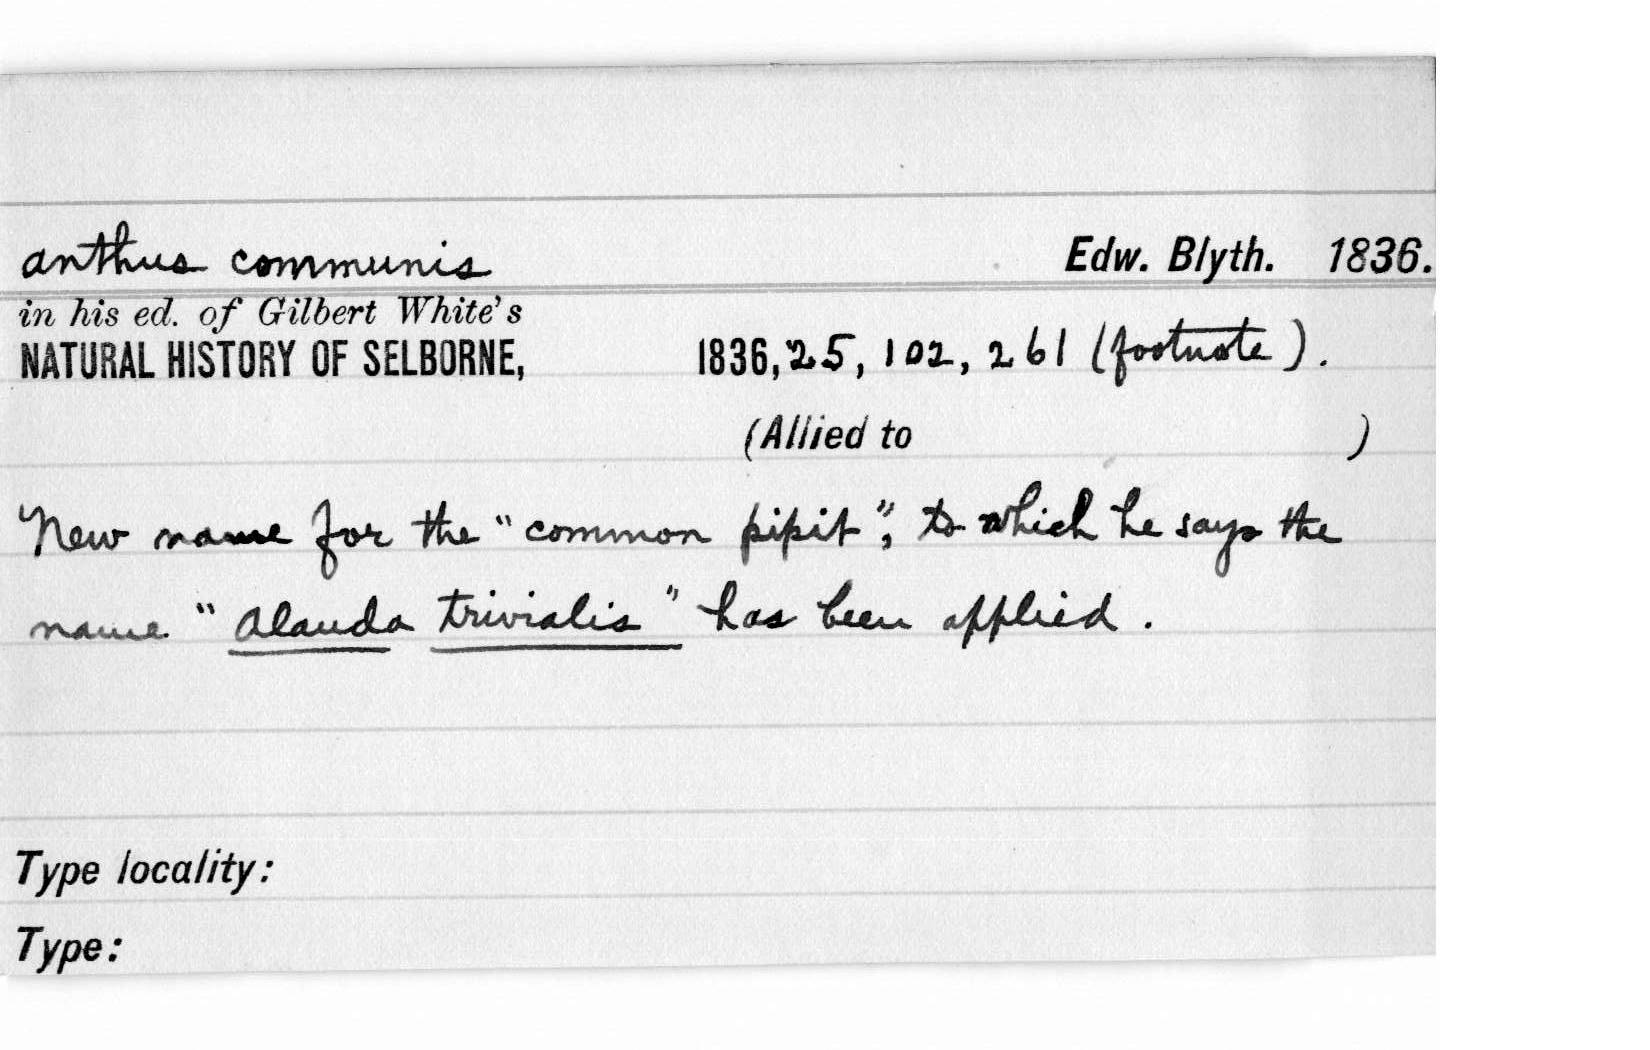 anthus communis Edw. Blyth. 1836.
in his ed. of Gilbert White's
NATURAL HISTORY OF SELBORNE, 1836, 25, 102, 261 (footnote).
(Allied to )
New name for the "common pipit", to which he says the
name "Alauda trivialis" has been applied.
Type locality:
Type: